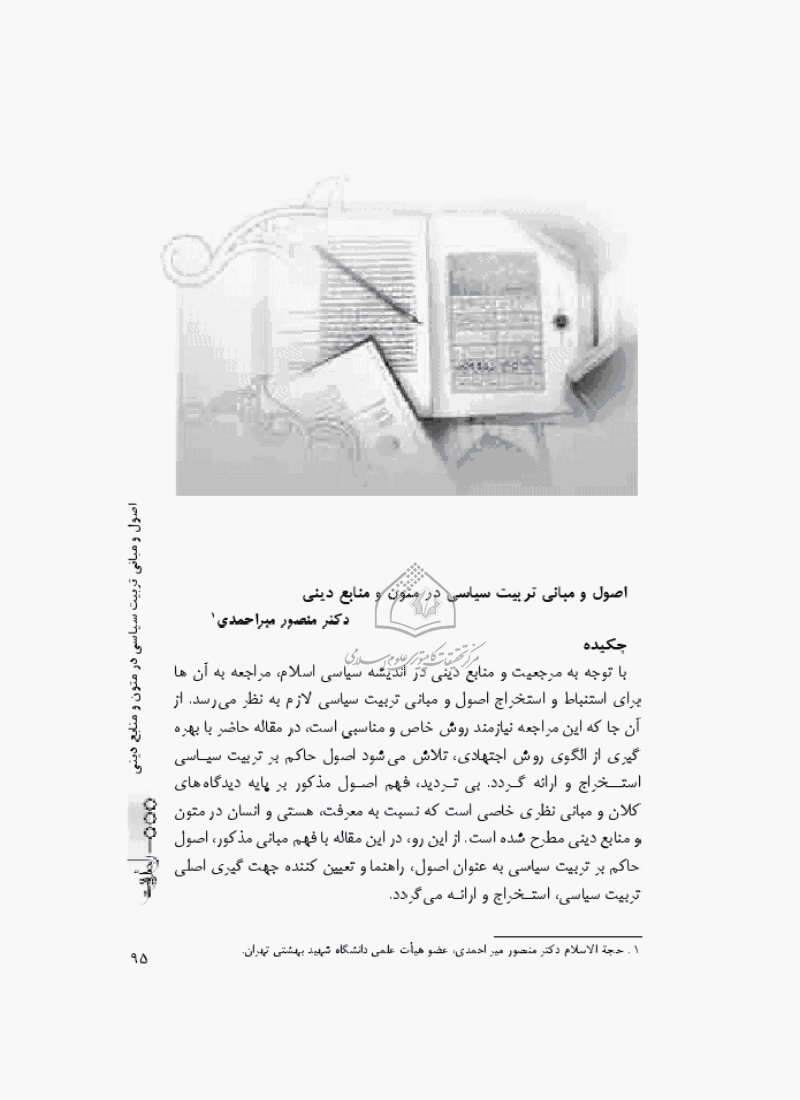 اصول و مبانی تربیت سیاسی در متون و منابع دینی
دکتر منصور میراحمدی۱
چکیده
با توجه به مرجعیت و منابع دینی در اندیشه سیاسی اسلام، مراجعه به آن ها
برای استنباط و استخراج اصول و مبانی تربیت سیاسی لازم به نظر می‌رسد. از
آن جا که این مراجعه نیازمند روش خاص و مناسبی است، در مقاله حاضر با بهره
گیری از الگوی روش اجتهادی، تلاش می‌شود اصول حاکم بر تربیت سیـاسی
استــخراج و ارائه گـردد. بی تـردید، فهم اصـول مذکور بر پایه دیدگاه‌های
کلان و مبانی نظری خاصی است که نسبت به معرفت، هستی و انسان در متون
و منابع دینی مطرح شده است. از این رو، در این مقاله با فهم مبانی مذکور، اصول
حاکم بر تربیت سیاسی به عنوان اصول، راهنما و تعیین کننده جهت گیری اصلی
تربیت سیاسی، استـخراج و ارائـه می‌گردد.
۱ . حجة الاسلام دکتر منصور میر احمدی، عضو هیأت علمی دانشگاه شهید بهشتی تهران.
اصول و مبانی تربیت سیاسی در متون و منابع دینی
۹۵
مرکز تحقیقات کامپیوتری علوم اسلامی